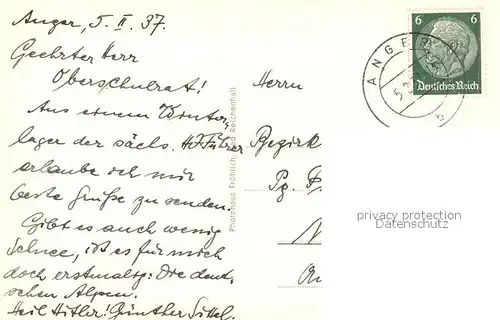 Anger, 5. II. 37.
Geehrter Herr
Oberschulrat!
Aus einem Winter-
lager der sächs. HJ-Führer
erlaube ich mir
beste Grüße zu senden.
Gibt es auch wenig
Schnee, ist es für mich
doch erstmalig: Die deut-
schen Alpen.
Heil Hitler! Günther
Photohaus Fröhlich, Bad Reichenhall
Herrn
Bezirk
Pg.
6 6
Deutsches Reich
ANGER
5.
b
privacy protection
Datenschutz